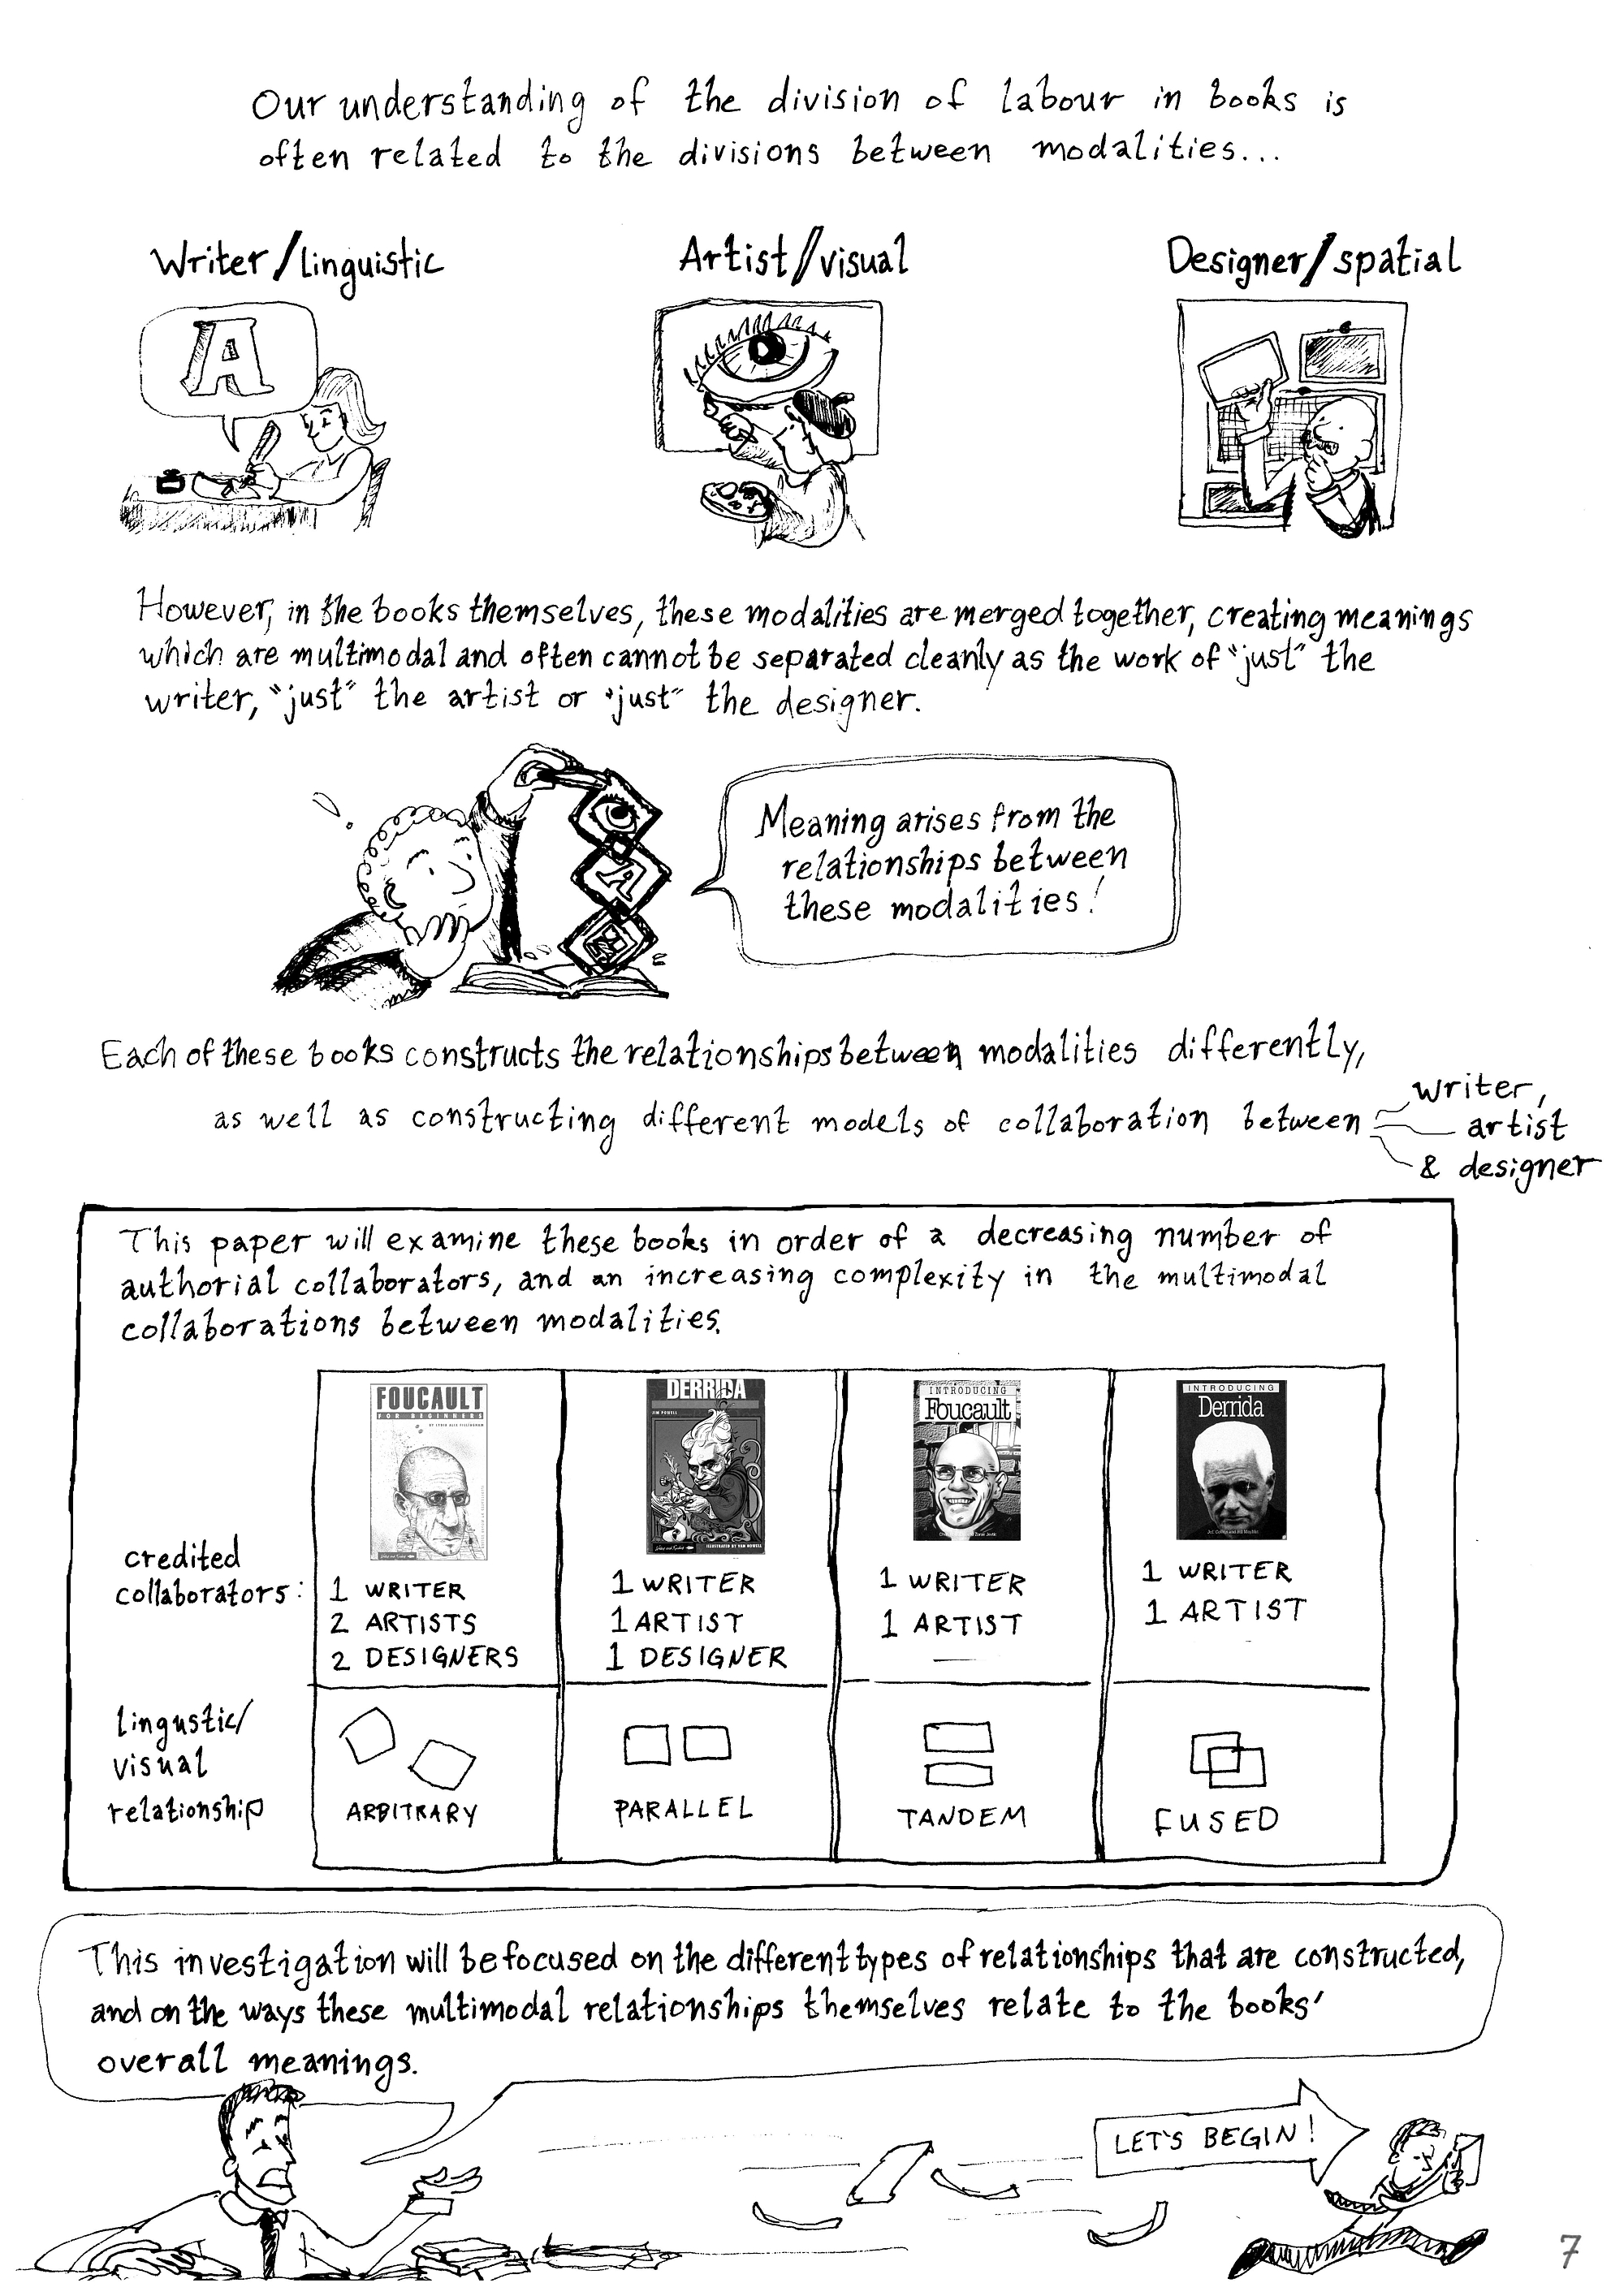 Our understanding of the division of labour in books is
often related to the divisions between modalities...
Writer/linguistic
Artist/visual
Designer/spatial
A
However, in the books themselves, these modalities are merged together, creating meanings
which are multimodal and often cannot be separated cleanly as the work of "just" the
writer, "just" the artist or "just" the designer.
A
Meaning arises from the
relationships between
these modalities!
Each of these books constructs the relationships between modalities differently,
as well as constructing different models of collaboration between
writer,
artist
& designer
This paper will examine these books in order of a decreasing number of
authorial collaborators, and an increasing complexity in the multimodal
collaborations between modalities.
FOUCAULT
FOR BEGINNERS
DERRIDA
JIM POWELL
ILLUSTRATED BY VAN HOWELL
INTRODUCING
Foucault
INTRODUCING
Derrida
credited
collaborators:
1 WRITER
2 ARTISTS
2 DESIGNERS
1 WRITER
1 ARTIST
1 DESIGNER
1 WRITER
1 ARTIST
1 WRITER
1 ARTIST
lingustic/
visual
relationship
ARBITRARY
PARALLEL
TANDEM
FUSED
This investigation will be focused on the different types of relationships that are constructed,
and on the ways these multimodal relationships themselves relate to the books'
overall meanings.
LET'S BEGIN!
7